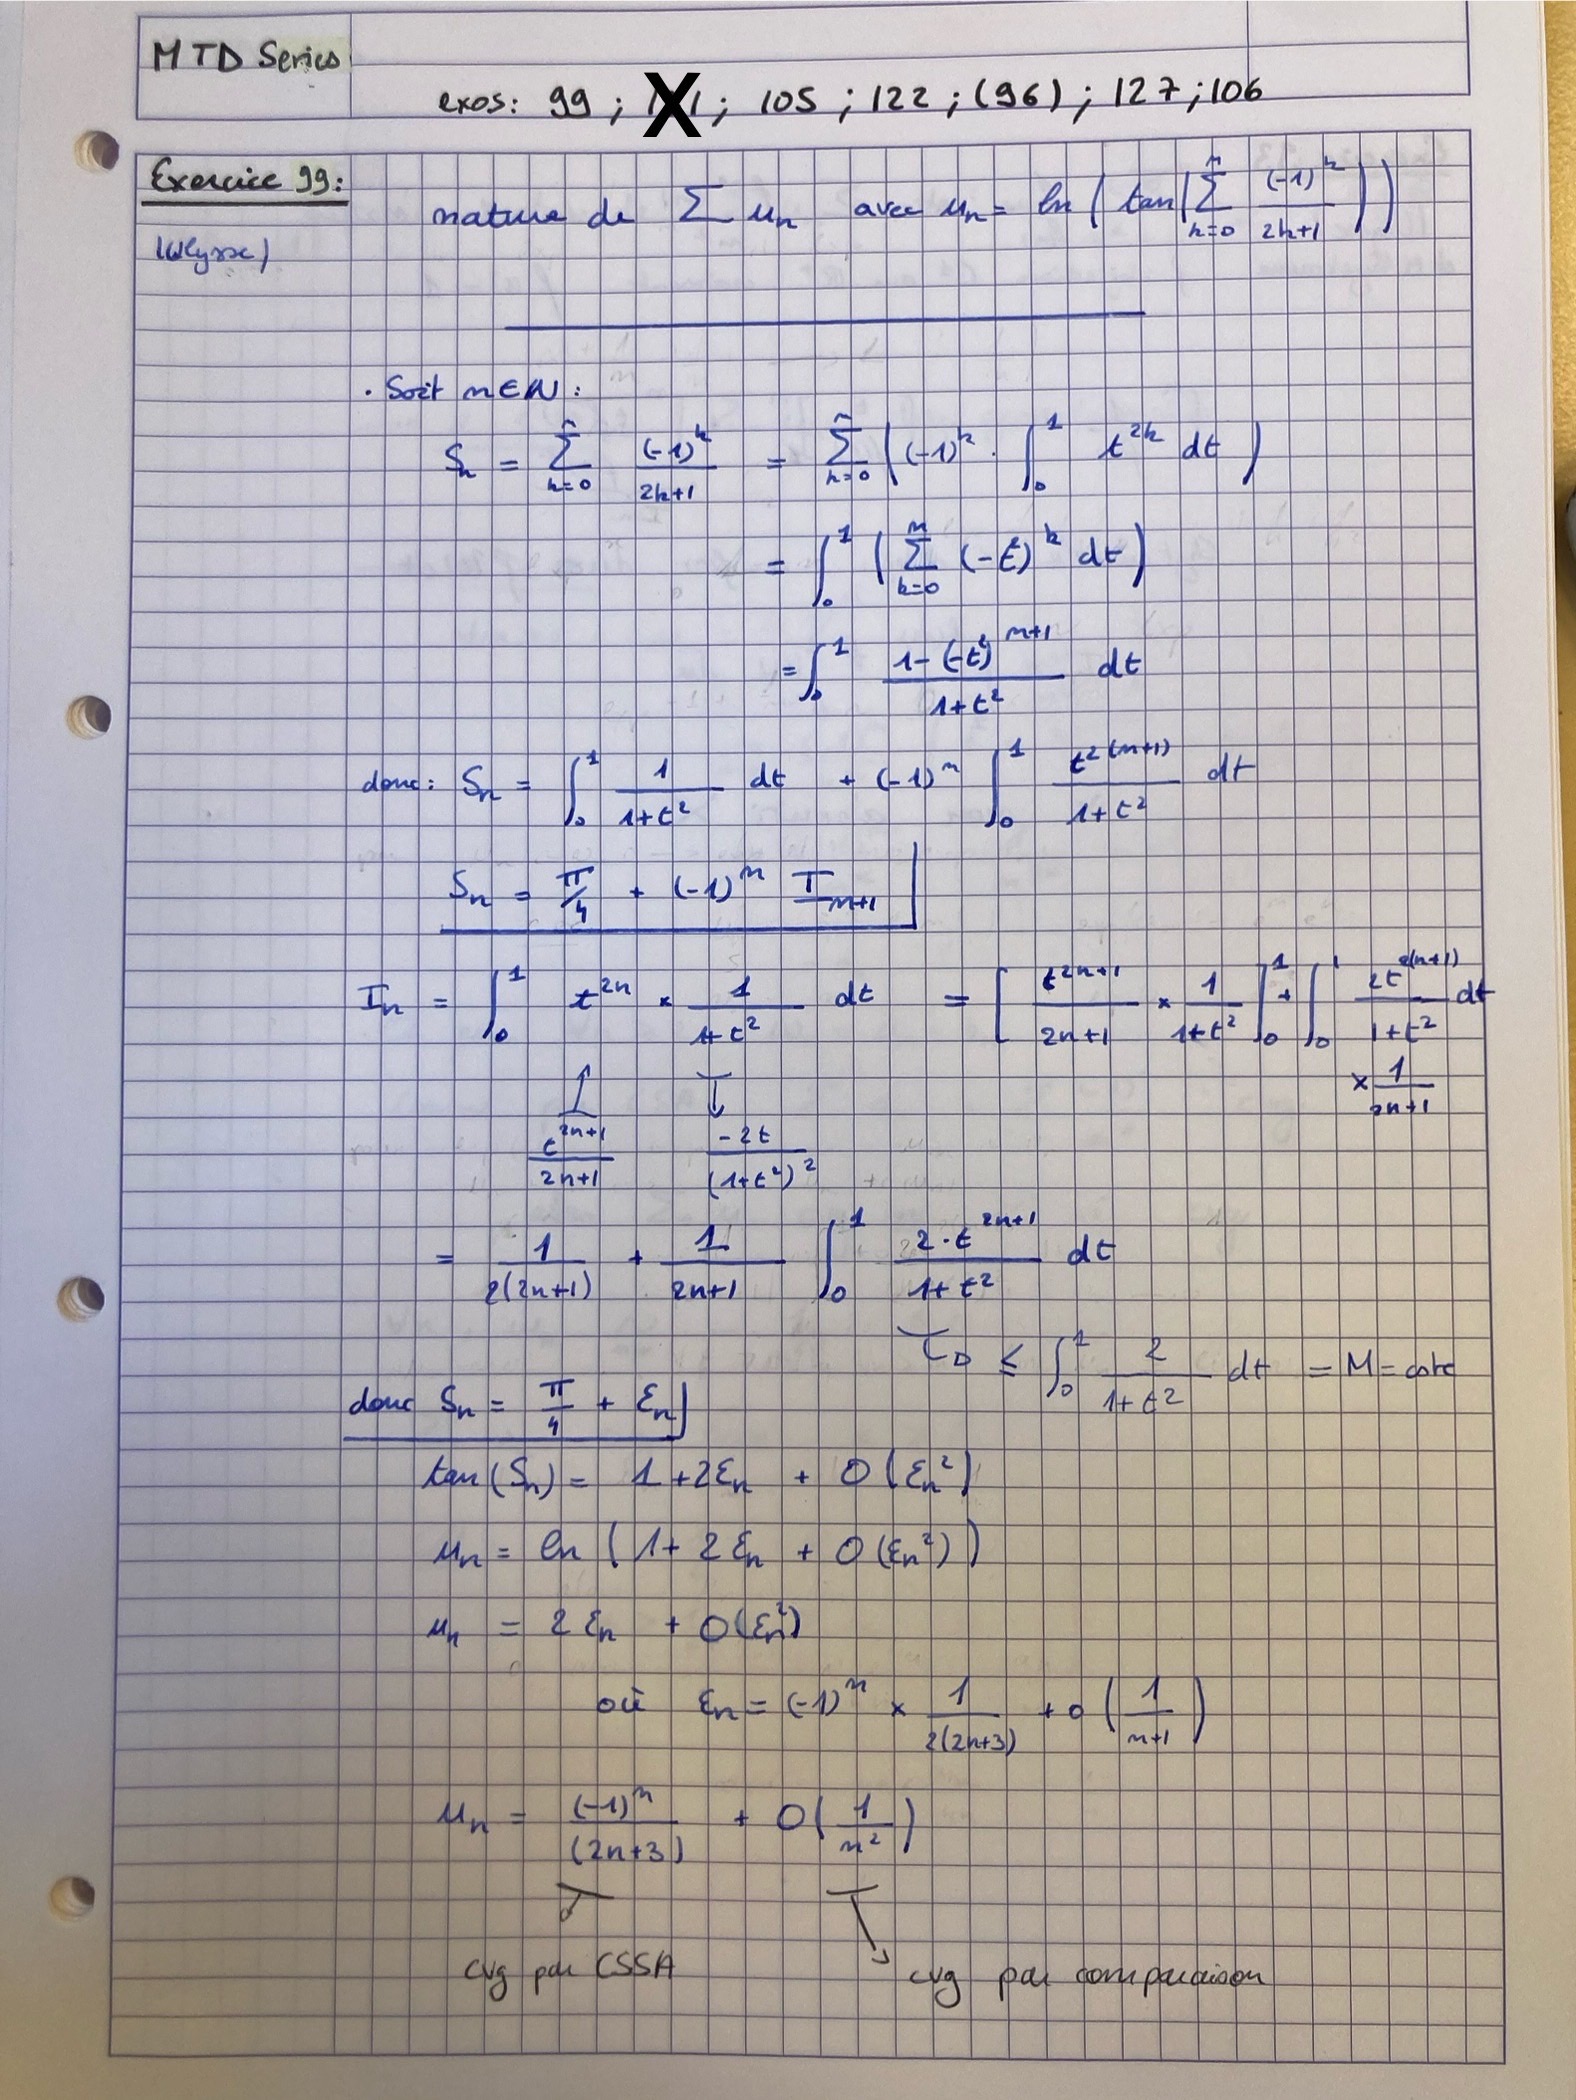 MTD Series
exos: 99 ; X ; 105 ; 122 ; (96) ; 127 ; 106
Exercice 99:
nature de ∑ u_n avec u_n = ln ( tan ( ∑_{k=0}^{n} (-1)^k / (2k+1) ) )
(Ulysse)
. Soit n ∈ ℕ :
S_n = ∑_{k=0}^{n} (-1)^k / (2k+1) = ∑_{k=0}^{n} ( (-1)^k · ∫_0^1 t^{2k} dt )
= ∫_0^1 ( ∑_{k=0}^{n} (-t²)^k dt )
= ∫_0^1 (1-(-t²)^{n+1}) / (1+t²) dt
donc: S_n = ∫_0^1 1/(1+t²) dt + (-1)^n ∫_0^1 t^{2(n+1)} / (1+t²) dt
S_n = π/4 + (-1)^n I_{n+1}
I_n = ∫_0^1 t^{2n} × 1/(1+t²) dt = [ t^{2n+1}/(2n+1) × 1/(1+t²) ]_0^1 + ∫_0^1 2t^{2(n+1)} / (1+t²) dt
× 1/(2n+1)
t^{2n+1}/(2n+1) -2t/(1+t²)²
= 1/(2(2n+1)) + 1/(2n+1) ∫_0^1 2·t^{2n+1} / (1+t²) dt
≤ ∫_0^1 2/(1+t²) dt = M = cste
donc S_n = π/4 + ε_n
tan(S_n) = 1 + 2ε_n + O(ε_n²)
u_n = ln ( 1 + 2ε_n + O(ε_n²) )
u_n = 2ε_n + O(ε_n²)
où ε_n = (-1)^n × 1/(2(2n+3)) + o ( 1/(n+1) )
u_n = (-1)^n / (2n+3) + O ( 1/n² )
cvg par CSSA cvg par comparaison